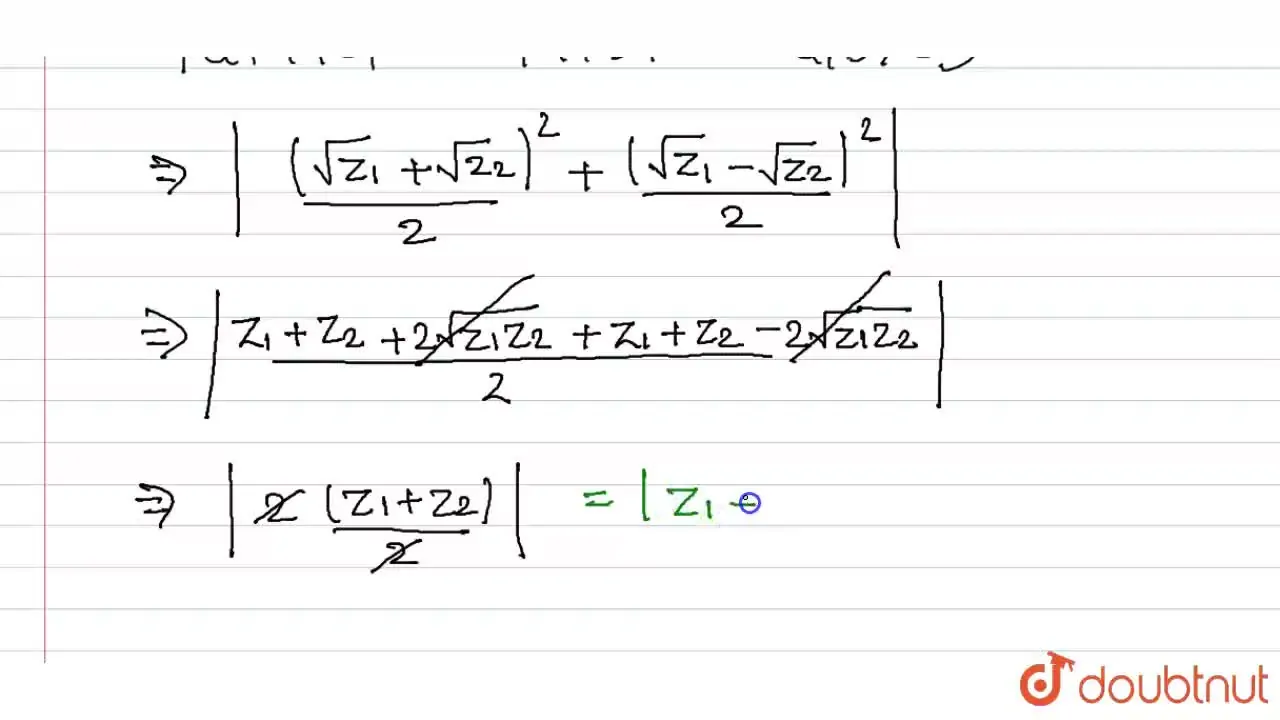 ⇒ | (√z₁ + √z₂)²/2 + (√z₁ − √z₂)²/2 |
⇒ | z₁ + z₂ + 2√z₁z₂ + z₁ + z₂ − 2√z₁z₂ / 2 |
⇒ | 2 (z₁ + z₂)/2 | = | z₁ −
doubtnut